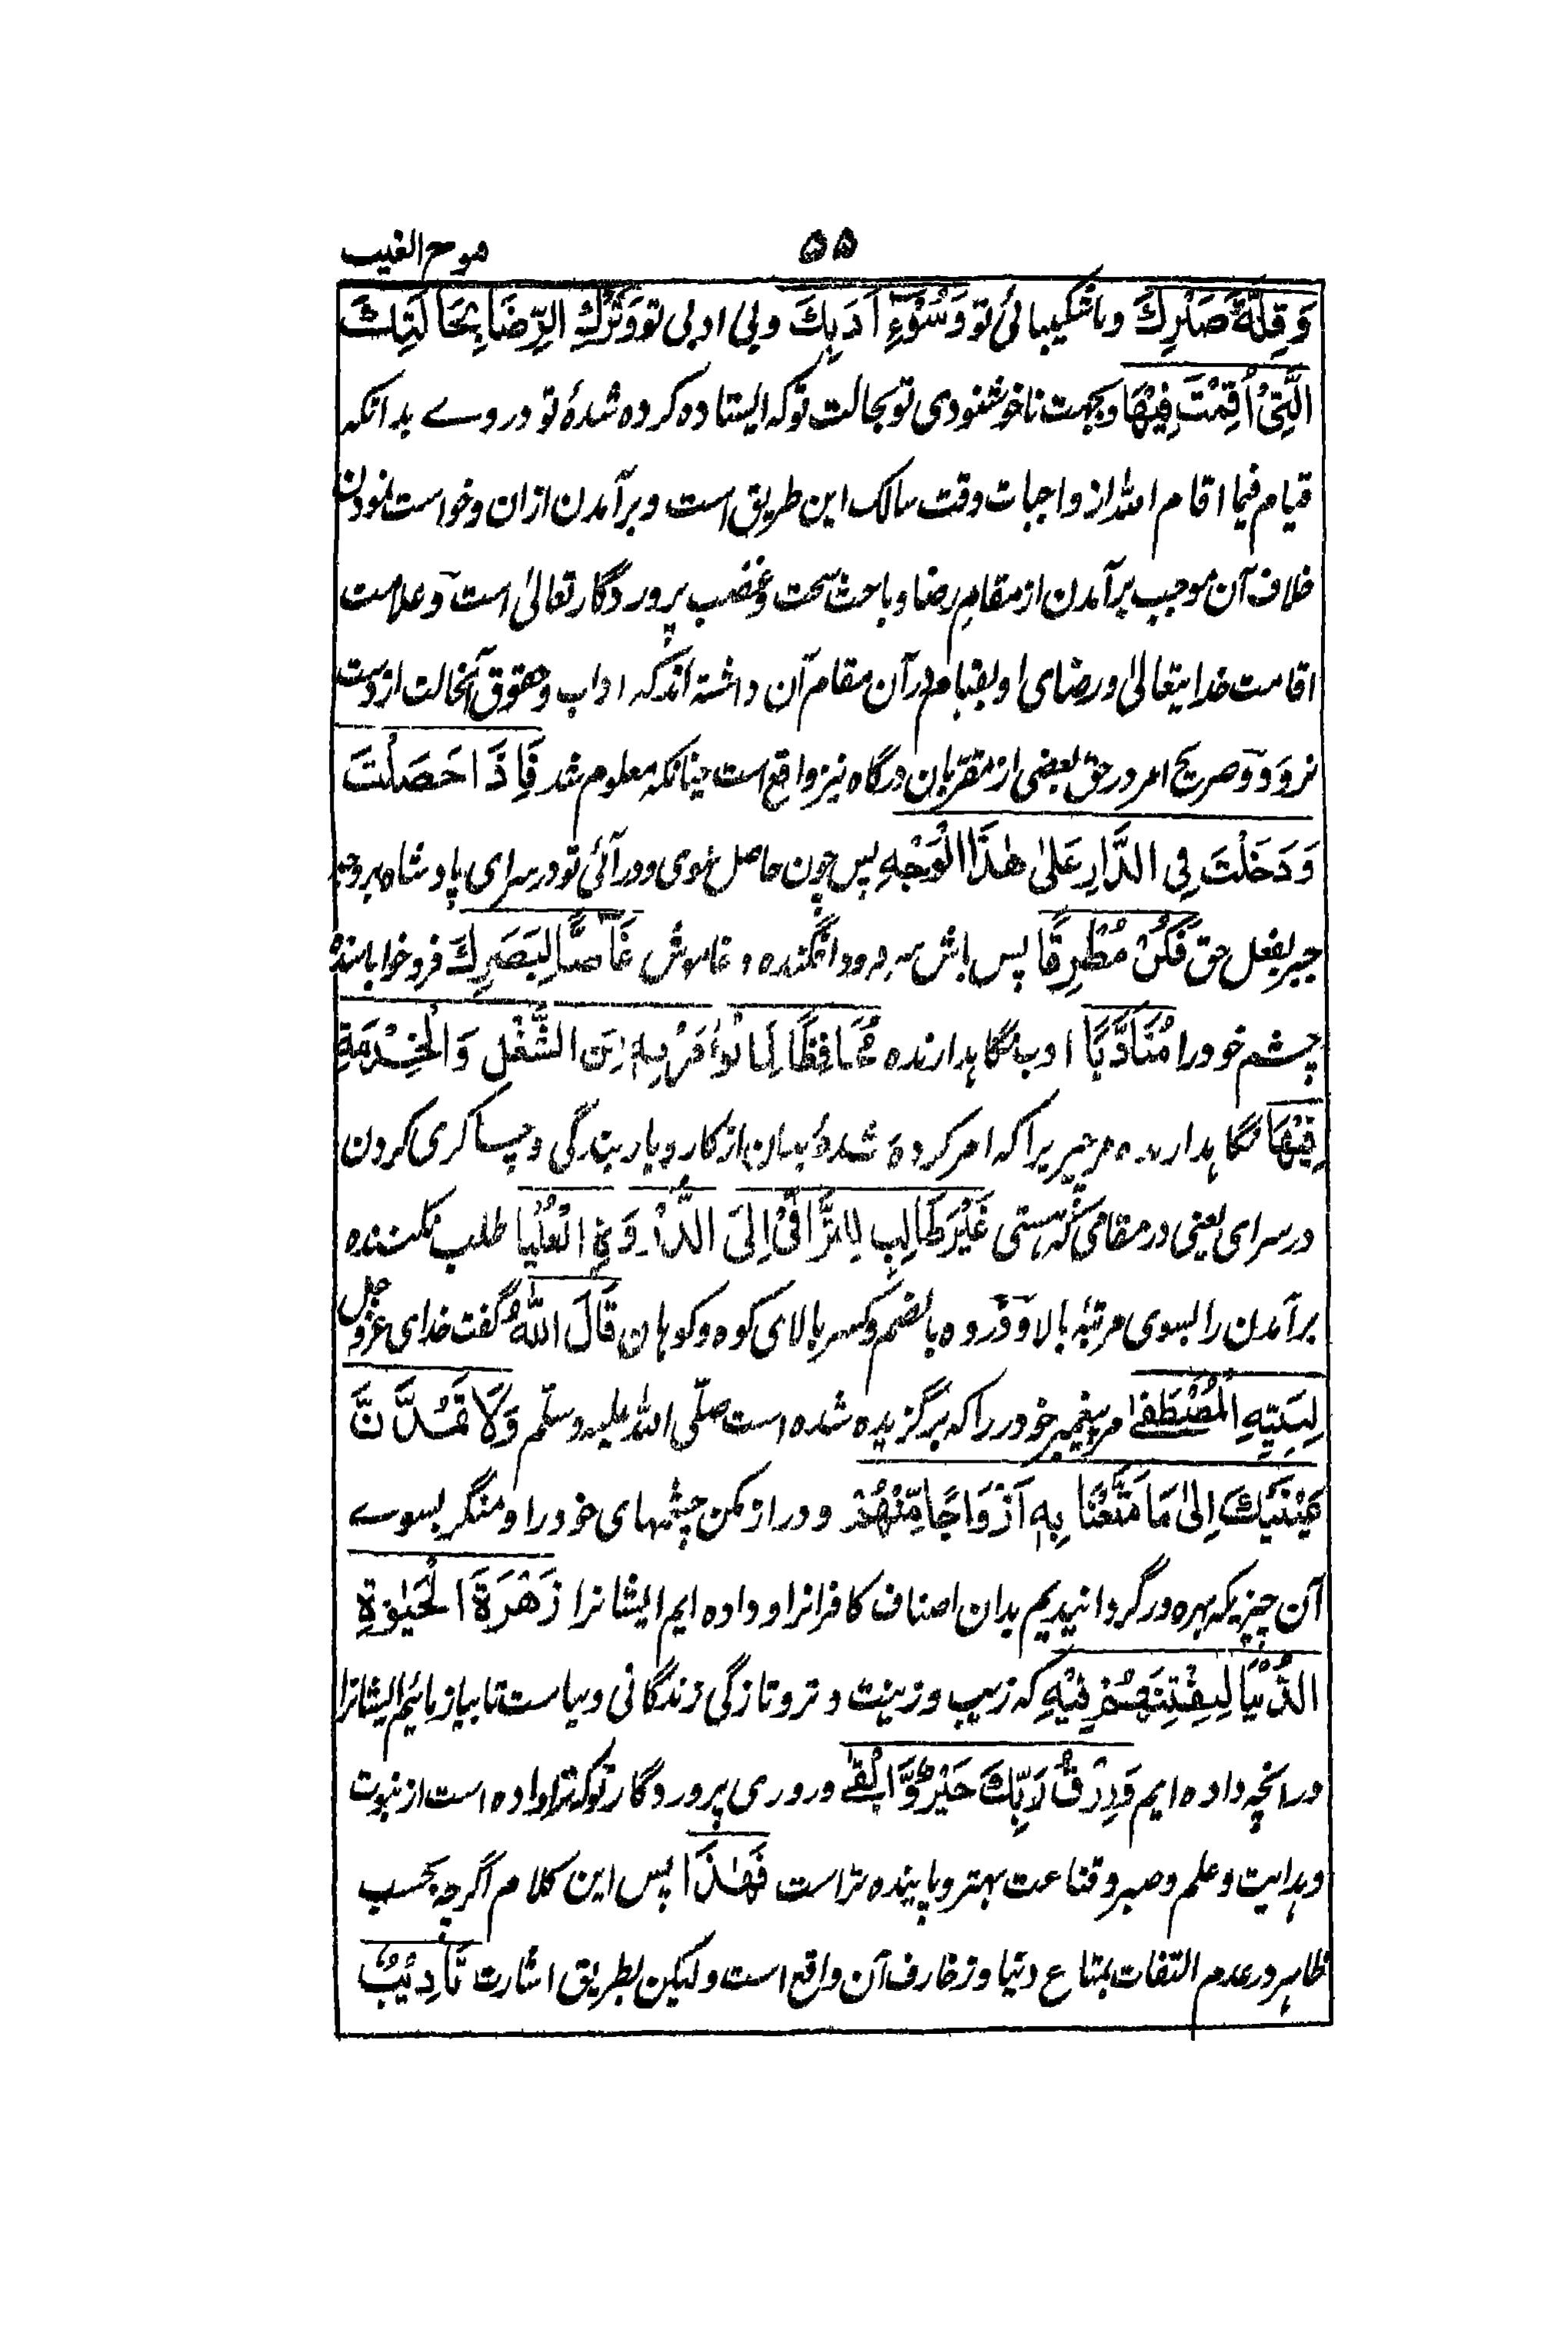 ۵۵
فتوح الغیب
وَقِلَّةِ صَبْرِكَ وناشکیبائی تو وَسُوْءِ اَدَبِكَ وبی ادبی تو وَتَرْكِ الرِّضَا بِحَالَتِكَ
الَّتِیْ اُقِمْتَ فِیْهَا وبجهت ناخوشنودی تو بحالت تو که ایستاده کرده شدهٔ تو در وے بدانکه
قیام فیما اقام الله از واجبات وقت سالک این طریق است وبرآمدن ازان وخواست نمودن
خلاف آن موجب برآمدن از مقام رضا وباعث سخت وغضب پروردگار تعالیٰ است وعلامت
اقامت خدایتعالیٰ ورضای او بقیام در آن مقام آن داشته اند که اداب وحقوق آنحالت از دست
نرود وصریح امر در حق بعضی از مقرّبان درگاه نیز واقع است چنانکه معلوم شد فَاِذَا حَصَلْتَ
وَدَخَلْتَ فِی الدَّارِ عَلیٰ هٰذَا الْوَجْهِ پس چون حاصل شوی ودرآئی تو در سرای پادشاه بر وجه
جبر بفعل حق فَكُنْ مُطْرِقًا پس باش سر فرود افگنده وخاموش غَاضًّا لِبَصَرِكَ فروخوابانند‌هٔ
چشم خود را مُتَأَدِّبًا ادب نگاهدارنده مُحَافِظًا لِمَا تُؤْمَرُ بِهٖ مِنَ الشُّغْلِ وَالْخِدْمَةِ
فِیْهَا نگاهدارنده مر چیزیرا که امر کرده شدهٔ بدان از کاروبار بندگی وچاکری کردن
در سرای یعنی در مقامی که هستی غَیْرَ طَالِبٍ لِلتَّرَقِّیْ اِلَی الذُّرْوَةِ الْعُلْیَا طلب نکننده
برآمدن را بسوی مرتبهٔ بالا وذروه بالضم وکسر بالای کوه وکوهان قَالَ اللهُ گفت خدای عزوجل
لِنَبِیِّهِ الْمُصْطَفیٰ مر پیغمبر خود را که برگزیده شده است صلّی الله علیه وسلّم وَلَا تَمُدَّنَّ
عَیْنَیْكَ اِلیٰ مَا مَتَّعْنَا بِهٖ اَزْوَاجًا مِّنْهُمْ ودراز مکن چشمهای خود را ومنگر بسوے
آن چیزیکه بهره ور گردانیدیم بدان اصناف کافرانرا وداده ایم ایشانرا زَهْرَةَ الْحَیٰوةِ
الدُّنْیَا لِنَفْتِنَهُمْ فِیْهِ که زیب وزینت وتروتازگی زندگانی دنیاست تا بیازمائیم ایشانرا
در انچه داده ایم وَرِزْقُ رَبِّكَ خَیْرٌ وَّاَبْقیٰ وروزی پروردگار تو که ترا داده است از نبوت
وهدایت وعلم وصبر وقناعت بهتر وپاینده تر است فَهٰذَا پس این کلام اگرچه بحسب
ظاهر در عدم التفات بمتاع دنیا وزخارف آن واقع است ولیکن بطریق اشارت تَأْدِیْبٌ